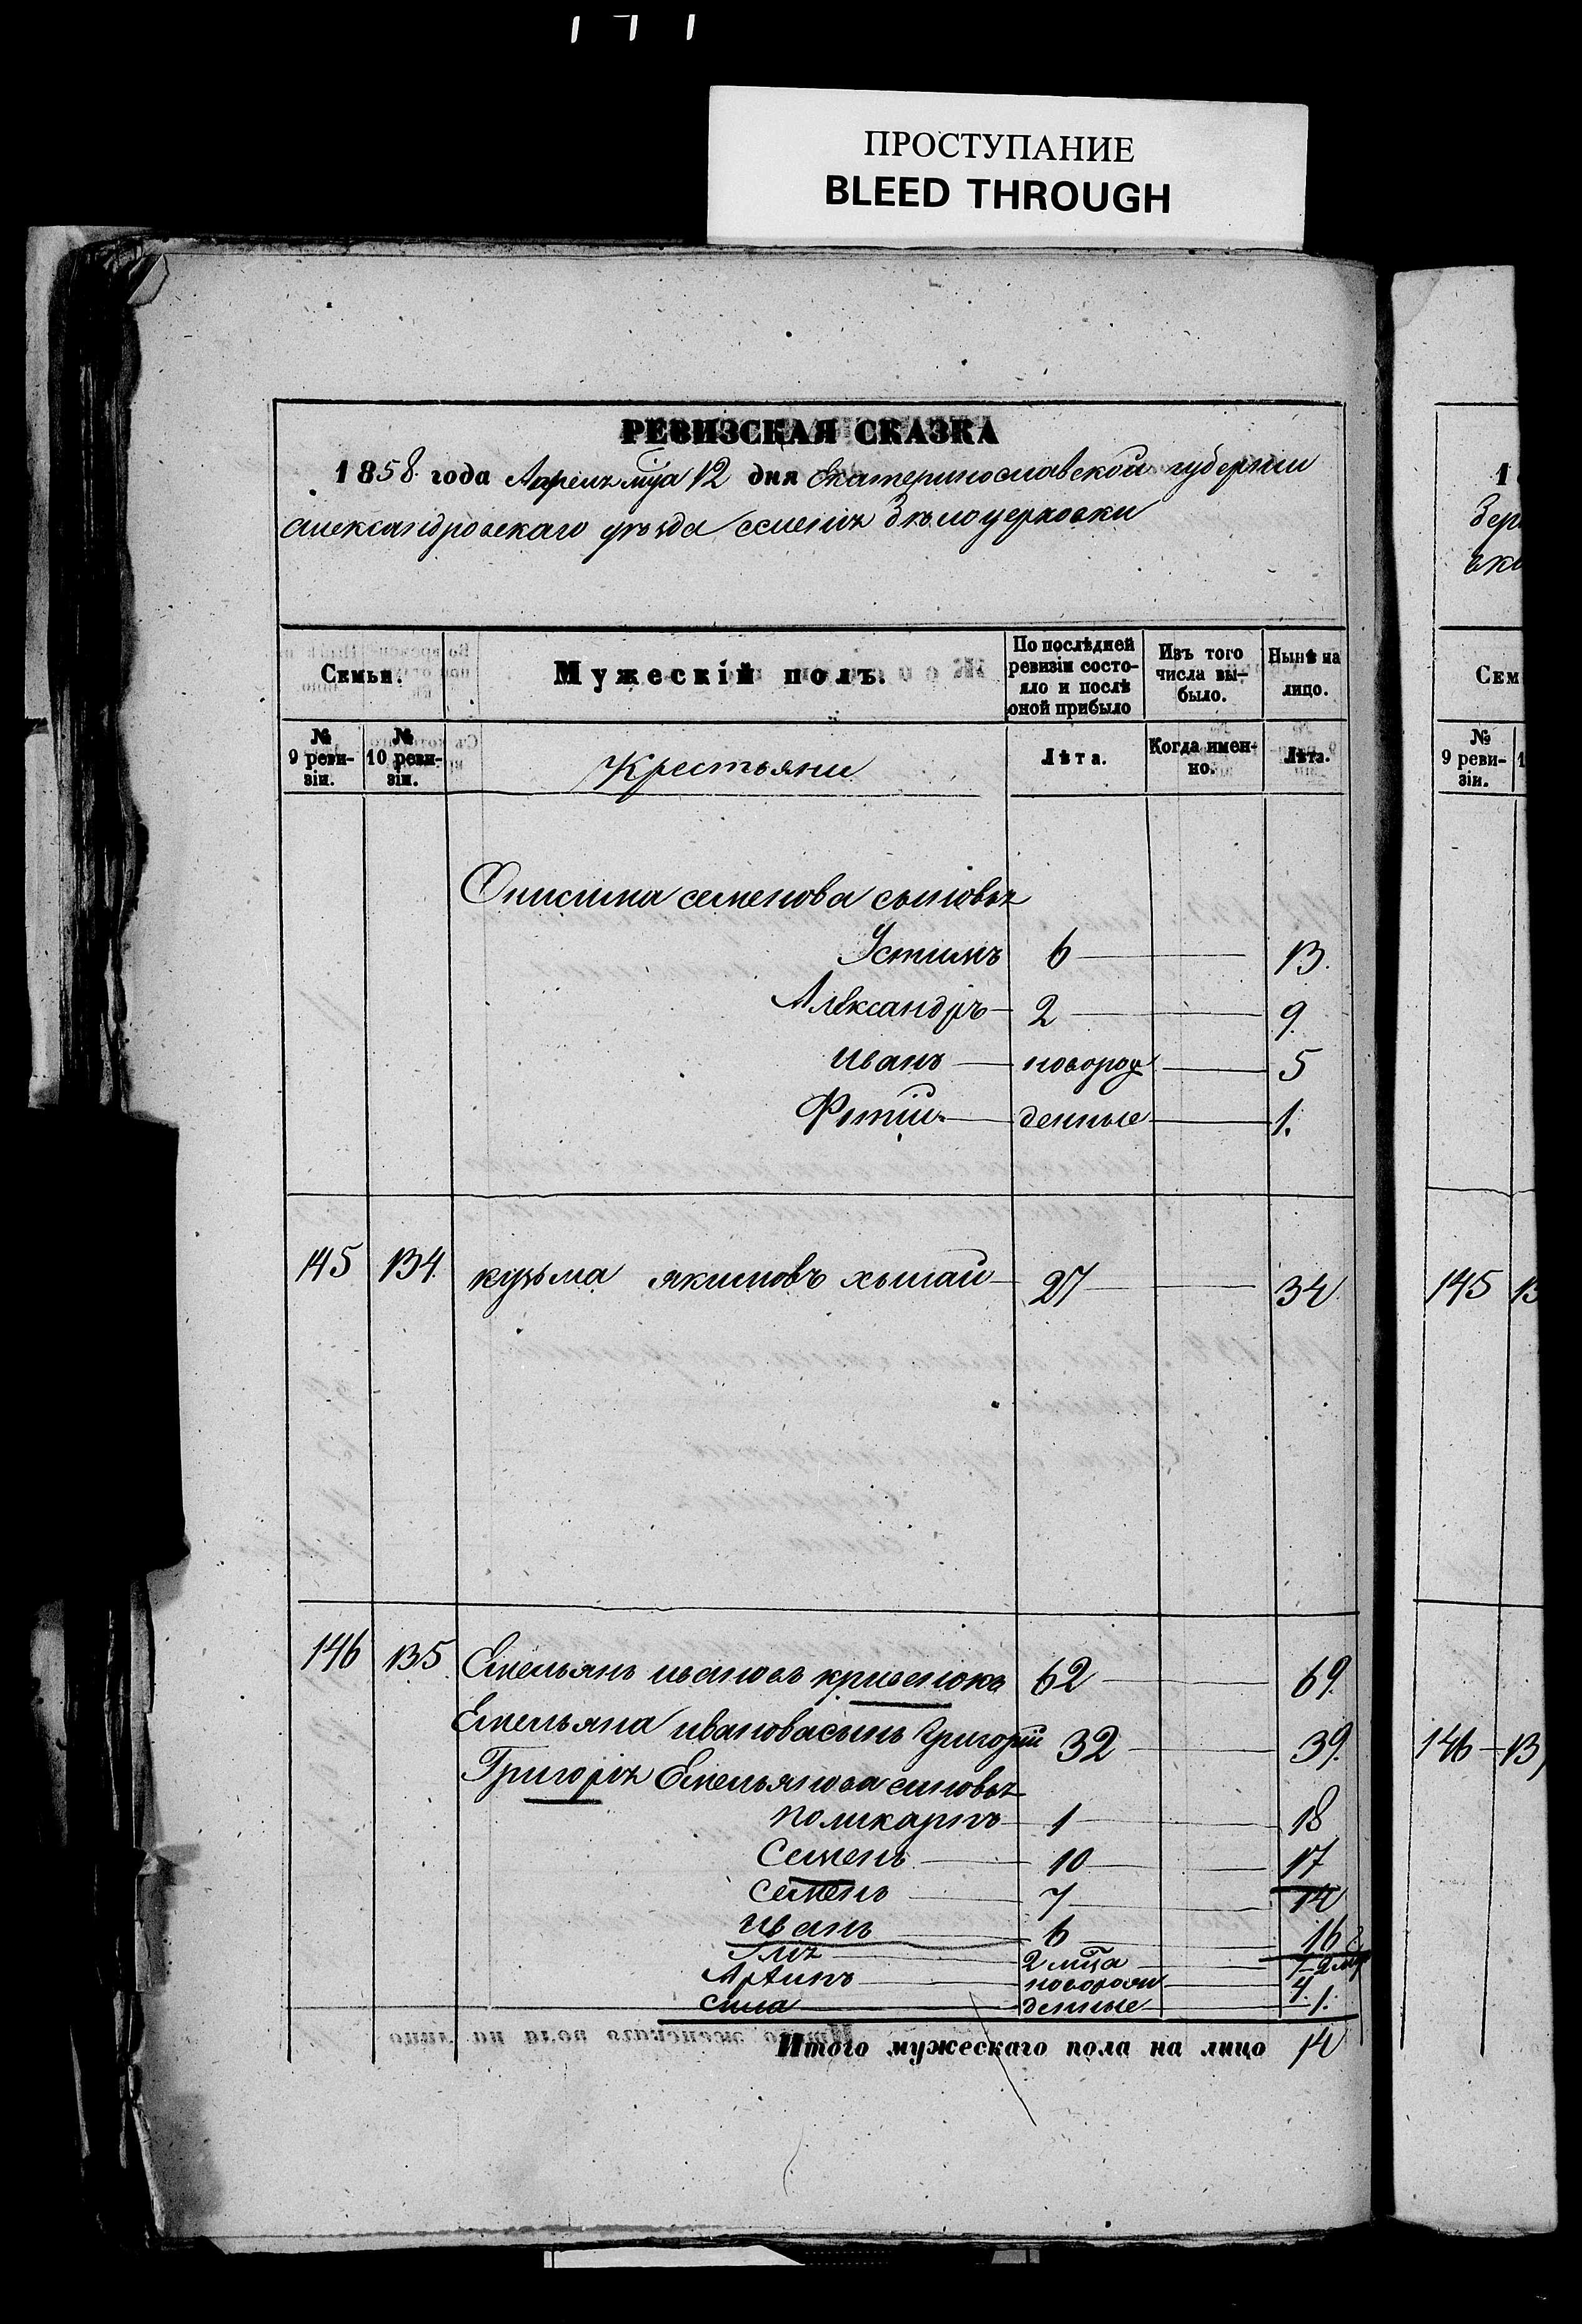 ПРОСТУПАНИЕ
BLEED THROUGH
РЕВИЗСКАЯ СКАЗКА
1858 года Апрель мца 12 дня Екатеринославской губернии
александровскаго уѣзда селенія Бѣлоцерковки
Семьи. Мужескій полъ. По послѣдней ревизіи состояло и послѣ оной прибыло Изъ того числа выбыло. Нынѣ на лицо.
№ 9 ревизіи. № 10 ревизіи. Крестьяни Лѣта. Когда именно. Лѣта.
Онисима семенова сыновья
Устимъ 6 13.
Александръ 2 9.
иванъ новорож 5
Фотій денные 1.
145 134 кузьма якимовъ 27 34
146 135 Емельянъ ивановъ кривенокъ 62 69.
Емельяна иванова сынъ Григорій 32 39.
Григорія Емельянова синовья
поликарпъ 1 18
Семенъ 10 17
семенъ 7 14
иванъ 6 16
2 мца
новорож 4.
сила денные 1.
Итого мужескаго пола на лицо 14
Сем
№ 9 реви- зіи.
145 13
146 13